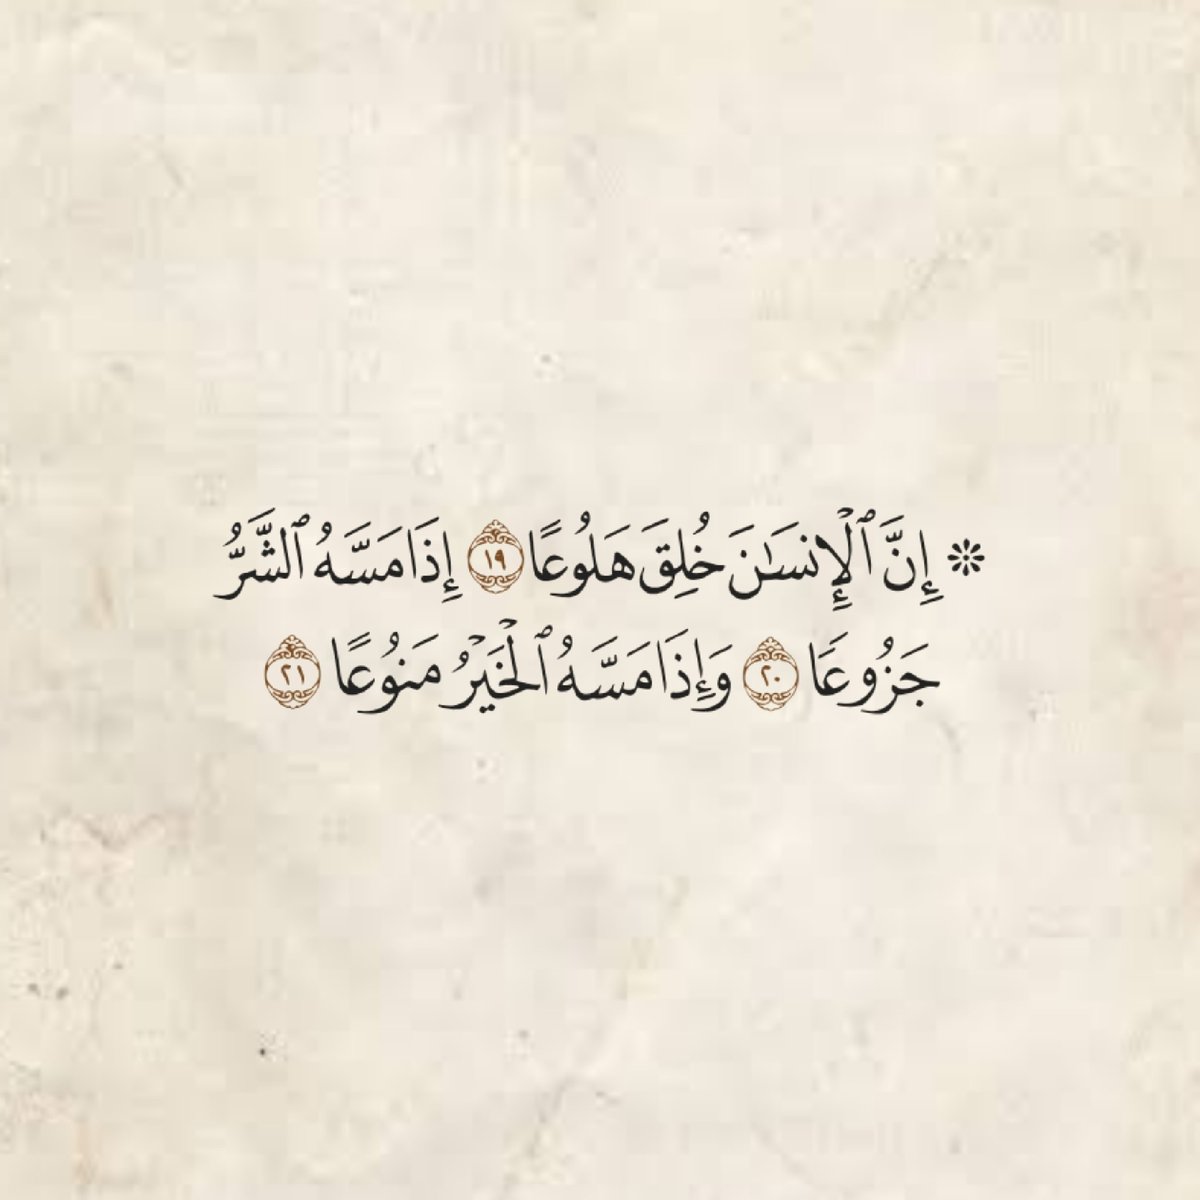 ۞ إِنَّ ٱلْإِنسَـٰنَ خُلِقَ هَلُوعًا ١٩ إِذَا مَسَّهُ ٱلشَّرُّ
جَزُوعًا ٢٠ وَإِذَا مَسَّهُ ٱلْخَيْرُ مَنُوعًا ٢١